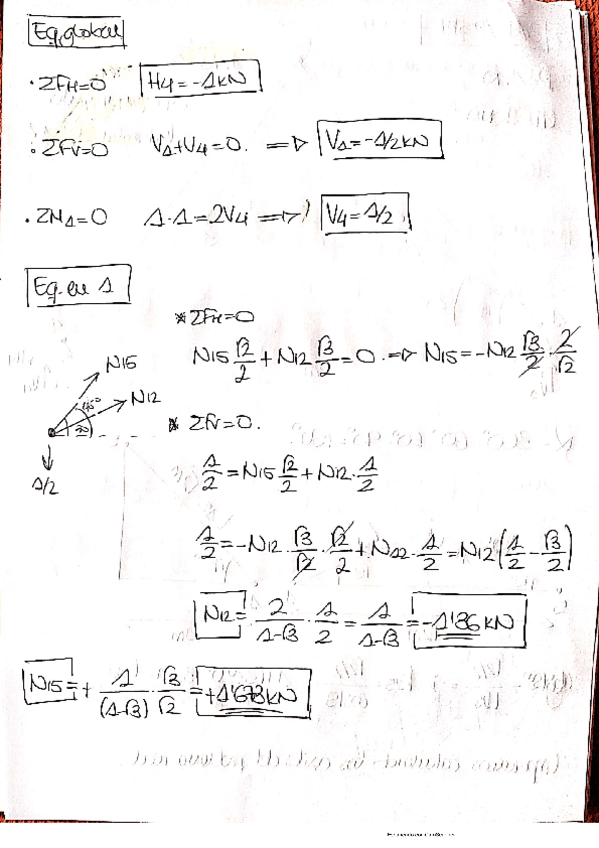 Eq. global
· ΣFH=0 H4=-1kN
· ΣFV=0 V1+V4=0. => V1=-1/2kN
· ΣM1=0 1·1=2V4 => V4=1/2
Eq. en 1
* ΣFH=0
N15 √2/2 + N12 √3/2 = 0. => N15=-N12 √3/2 · 2/√2
N15
N12
45°
30
1/2
* ΣFV=0.
1/2 = N15 √2/2 + N12 · 1/2
1/2 = -N12 · √3/√2 · √2/2 + N12 · 1/2 = N12 (1/2 - √3/2)
N12 = 2/1-√3 · 1/2 = 1/1-√3 = -1'36 kN
N15 = + 1/(1-√3) · √3/√2 = +1'673kN